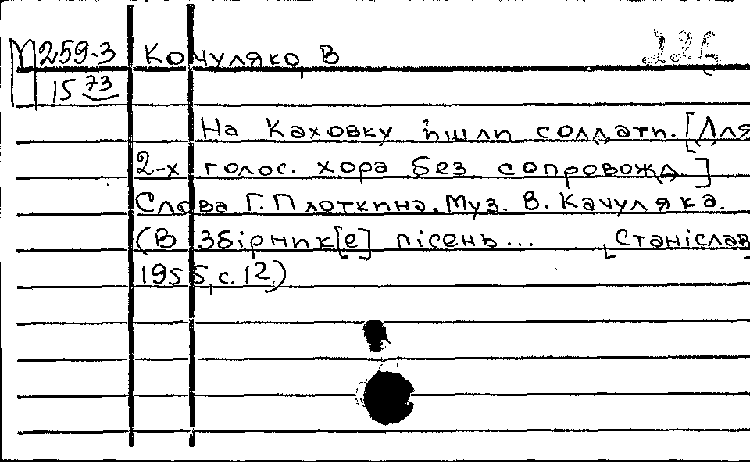 М259-3 Качуляко, В 226
15 73
На Каховку йшли солдати. [Для
2-х голос. хора без сопровожд.]
Слова Г. Плоткина. Муз. В. Качуляка.
(В Збірник[е] пісень... [Станіслав
1955, с. 12)